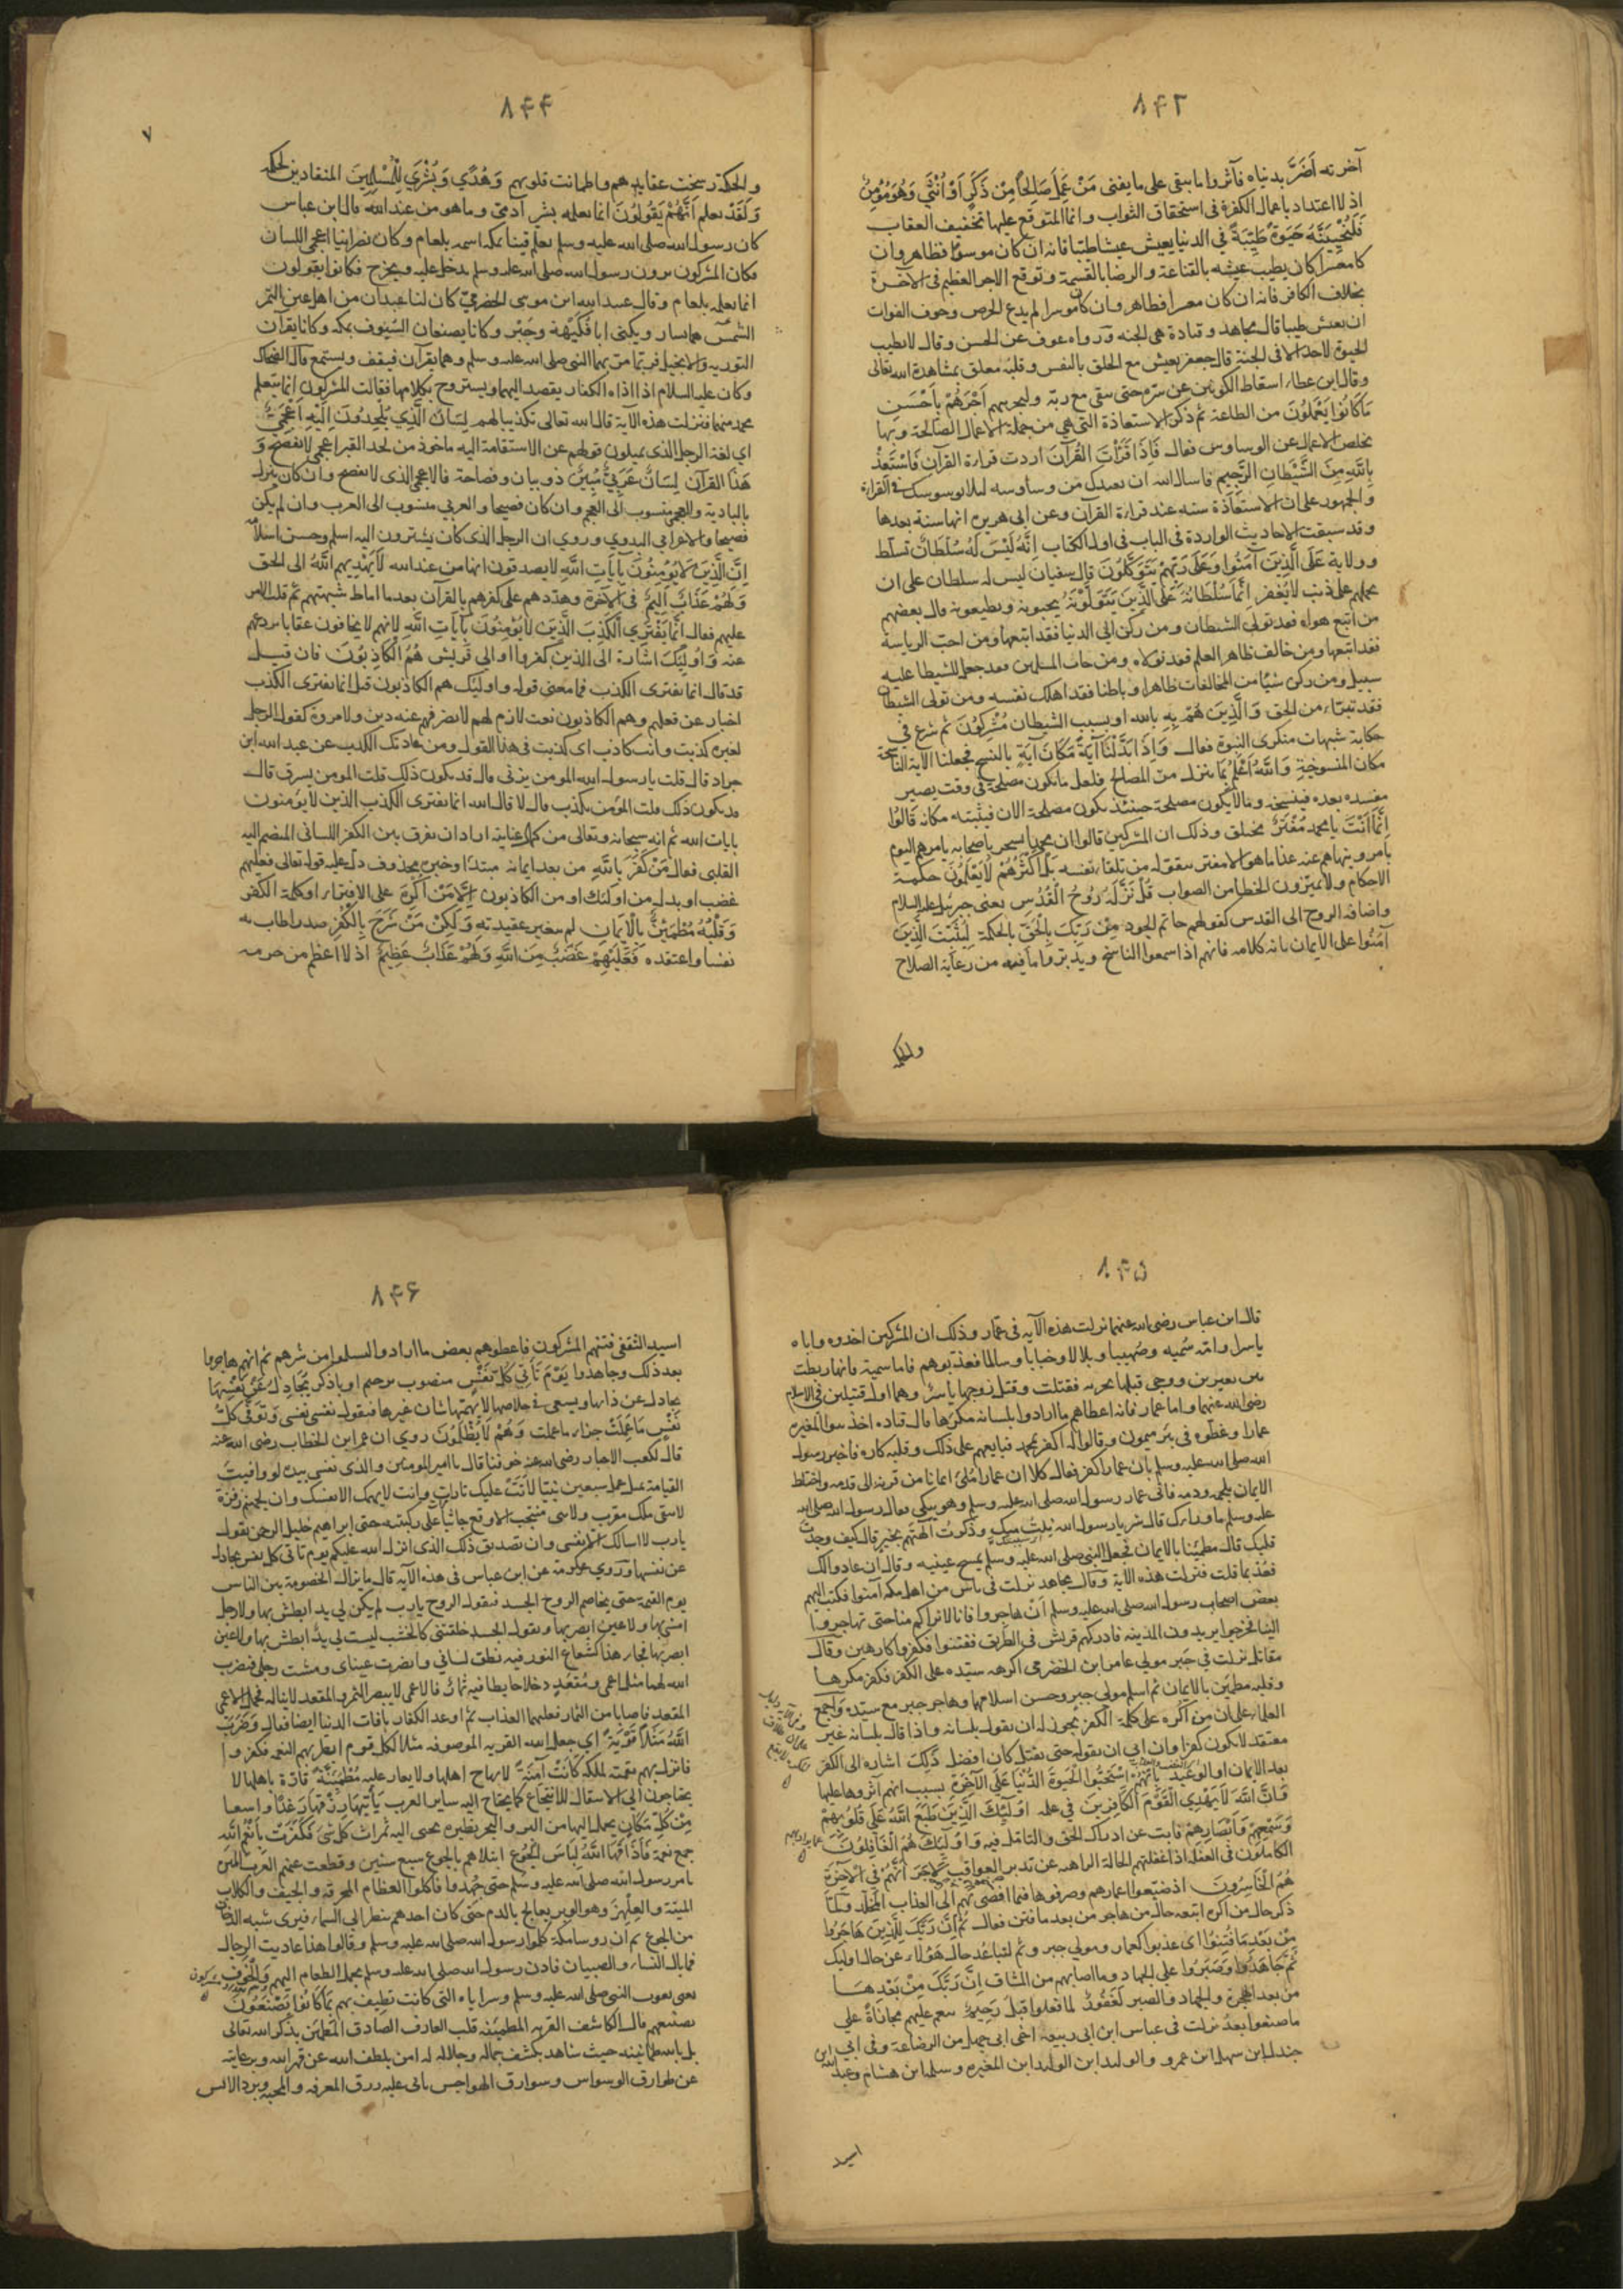 ٨٤٣
آخرته أَضَرَّ بدنياه فآثروا ما يبقى على ما يفنى مَنْ عَمِلَ صَالِحًا مِنْ ذَكَرٍ اَوْ اُنْثَى وَهُوَ مُؤمِنٌ
اذ لا اعتداد باعمال الكفرة فى استحقاق الثواب وانما المتوقع عليها تخفيف العقاب
فَلَنُحْيِيَنَّهُ حَيَوةً طَيِّبَةً فى الدنيا يعيش عيشا طيبا فانه ان كان موسرا فظاهر وان
كا معسرا كان يطيب عيشه بالقناعة والرضا بالقسمة وتوقع الاجر العظيم فى الآخرة
بخلاف الكافر فانه ان كان معسرا فظاهر وان كان موسرا لم يدع الحرص وخوف الفوات
ان يعيش طيبا قال مجاهد وقتادة هى الجنه ورواه عوف عن الحسن وقال لا يطيب
الحيوة لاحد الا فى الجنة قال جعفر يعيش مع الخلق بالنفس وقلبه معلق بمشاهدة الله تعالى
وقال ابن عطاء اسقاط الكونين عن سره حتى يبقى مع ربه ولنجزينهم اَجْرَهُمْ بِاَحْسَنِ
مَا كَانُوا يَعْمَلُونَ من الطاعة ثم ذكر الاستعاذة التى هى من جملة الاعمال الصالحة وبها
يخلص الاعمال عن الوساوس فقال فَاِذَا قَرَأْتَ القُرْآنَ اردت قراءة القرآن فَاسْتَعِذْ
بِاللَّهِ مِنَ الشَّيْطَانِ الرَّجِيمِ فاسال الله ان يعيذك من وساوسه ليلا يوسوسك فى القراءة
والجمهور على ان الاستعاذة سنه عند قراءة القرآن وعن ابى هريرة انها سنة بعدها
وقد سبقت الاحاديث الواردة فى الباب فى اول الكتاب اِنَّهُ لَيْسَ لَهُ سُلْطَانٌ تسلط
وولاية عَلَى الَّذِينَ آمَنُوا وَعَلَى رَبِّهِمْ يَتَوَكَّلُونَ قال سفيان ليس له سلطان على ان
يحملهم على ذنب لا يُغفر اِنَّمَا سُلْطَانُهُ عَلَى الَّذِينَ يَتَوَلَّوْنَهُ يحبونه ويطيعونه قال بعضهم
من اتبع هواه فقد تولى الشيطان ومن ركن الى الدنيا فقد اتبعها ومن احب الرياسة
فقد اتبعها ومن خالف ظاهر العلم فقد تولاه ومن خان المسلمين فقد جعل للشيطا عليه
سبيل ومن ركن شيئا من المخالفات ظاهرا وباطنا فقد اهلك نفسه ومن تولى الشيطان
فقد تبراء من الحق وَالَّذِينَ هُمْ بِهِ بالله او بسبب الشيطان مُشْرِكُونَ ثم شرع فى
حكاية شبهات منكرى النبوة فقال وَاِذَا بَدَّلْنَا آيَةً مَكَانَ آيَةٍ بالنسخ فجعلنا الآية الناسخة
مكان المنسوخة وَاللَّهُ اَعْلَمُ بِمَا يُنَزِّلُ من المصالح فلعل ما يكون مصلحة فى وقت يصير
مفسده بعده فينسخه وما لا يكون مصلحة حينئذ يكون مصلحة الان فيثبته مكانه قَالُوا
اِنَّمَا اَنْتَ يا محمد مُفْتَرٍ مختلق وذلك ان المشركين قالوا ان محمدا يسخر باصحابه يامرهم اليوم
بامر وينهاهم عنه غدا ما هو الا مفتر يتقوله من تلقاء نفسه بَلْ اَكْثَرُهُمْ لَا يَعْلَمُونَ حكمة
الاحكام ولا يميزون الخطا من الصواب قُلْ نَزَّلَهُ رُوحُ الْقُدُسِ يعنى جبرئيل عليه السلام
واضافه الروح الى القدس كقولهم حاتم الجود مِنْ رَبِّكَ بِالْحَقِّ بالحكمة لِيُثَبِّتَ الَّذِينَ
آمَنُوا على الايمان بانه كلامه فانهم اذا سمعوا الناسخ وتدبروا ما فيه من رعاية الصلاح
والحكمة
٨٤٤
٧
والحكمة رسخت عقايدهم واطمانت قلوبهم وَهُدًى وَبُشْرَى لِلْمُسْلِمِينَ المنقادين لحكمه
وَلَقَدْ نعلم اَنَّهُمْ يَقُولُونَ انما يعلمه بشر آدمى وما هو من عند الله قال ابن عباس
كان رسول الله صلى الله عليه وسلم يعلم قينا بمكه اسمه بلعام وكان نصرانيا اعجمى اللسان
فكان المشركون يرون رسول الله صلى الله عليه وسلم يدخل عليه ويخرج فكانوا يقولون
انما يعلمه بلعام وقال عبد الله ابن موسى الحضرمى كان لنا عبدان من اهل عين التمر
الشمس هما يسار ويكنى ابا فُكَيْهة وجَبْر وكانا يصنعان السيوف بمكه وكانا يقرآن
التوريه والانجيل فربما مر بهما النبى صلى الله عليه وسلم وهما يقرآن فيقف ويستمع قال الضحاك
وكان عليه السلام اذا اذاه الكفار يقصد اليهما ويستروح بكلامهما فقالت المشركون انما يتعلم
محمد منهما فنزلت هذه الآية قال الله تعالى تكذيبا لهم لِسَانُ الَّذِي يُلْحِدُونَ اِلَيْهِ اَعْجَمِيٌّ
اى لغة الرجل الذى يميلون قولهم عن الاستقامة اليه ماخوذ من لحد القبر اعجمى لا يفصح وَ
هَذَا القرآن لِسَانٌ عَرَبِيٌّ مُبِينٌ ذو بيان وفصاحة فالاعجمى الذى لا يفصح وان كان ينزل
بالبادية والعجمى منسوب الى العجم وان كان فصيحا والعربى منسوب الى العرب وان لم يكن
فصيحا والاعرابى البدوى وروى ان الرجل الذى كان يشيرون اليه اسلم وحسن اسلامه
اِنَّ الَّذِينَ لَا يُؤْمِنُونَ بِآيَاتِ اللَّهِ لا يصدقون انها من عند الله لَا يَهْدِيهِمُ اللَّهُ الى الحق
وَلَهُمْ عَذَابٌ اَلِيمٌ فى الآخرة وهددهم على كفرهم بالقرآن بعد ما اماط شبهتهم ثم قلب الامر
عليهم فقال اِنَّمَا يَفْتَرِي الْكَذِبَ الَّذِينَ لَا يُؤْمِنُونَ بِآيَاتِ اللَّهِ لانهم لا يخافون عقابا يردعهم
عنه وَاُولَئِكَ اشارة الى الذين كفروا او الى قريش هُمُ الْكَاذِبُونَ فان قيل
قد قال انما يفترى الكذب فما معنى قوله واولئك هم الكاذبون قيل انما يفترى الكذب
اخبار عن فعلهم وهم الكاذبون نعت لازم لهم لا يصرفهم عنه دين ولا مروة كقول الرجل
لغيره كذبت وانت كاذب اى كذبت فى هذا القول ومن عادتك الكذب عن عبد الله ابن
جراد قال قلت يا رسول الله المومن يزنى قال قد يكون ذلك قلت المومن يسرق قال
قد يكون ذلك قلت المؤمن يكذب قال لا قال الله انما يفترى الكذب الذين لا يؤمنون
بايات الله ثم انه سبحانه وتعالى من كمال عنايته اراد ان يفرق بين الكفر اللسانى المنضم اليه
القلبى فقال مَنْ كَفَرَ بِاللَّهِ من بعد ايمانه مبتدا وخبره محذوف دل عليه قوله تعالى فعليهم
غضب او بدل من اولئك او من الكاذبون اِلَّا مَنْ اُكْرِهَ على الافتراء او كلمة الكفر
وَقَلْبُهُ مُطْمَئِنٌّ بِالْاِيمَانِ لم يتغير عقيدته وَلَكِنْ مَنْ شَرَحَ بِالْكُفْرِ صدرا طاب به
نفسا واعتقده فَعَلَيْهِمْ غَضَبٌ مِنَ اللَّهِ وَلَهُمْ عَذَابٌ عَظِيمٌ اذ لا اعظم من جرمه
٨٤٥
قال ابن عباس رضى الله عنهما نزلت هذه الآية فى عمار وذلك ان المشركين اخذوه واباه
ياسرا وامه سُميه وصُهيبا وبلالا وخبابا وسالما فعذبوهم فاما سمية فانها ربطت
بين بعيرين ووجى قبلها بحربه فقتلت وقتل زوجها ياسر وهما اول قتيلين فى الاسلام
رضى الله عنهما واما عمار فانه اعطاهم ما ارادوا بلسانه مكرها قال قتاده اخذ بنوا المغيره
عمارا وغطوه فى بئر ميمون وقالوا له اكفر بمحمد فبايعهم على ذلك وقلبه كاره فاخبر رسول
الله صلى الله عليه وسلم بان عمارا كفر فقال كلا ان عمارا مُلئ ايمانا من قرنه الى قدمه واختلط
الايمان بلحمه ودمه فاتى عمار رسول الله صلى الله عليه وسلم وهو يبكى فقال رسول الله صلى الله
عليه وسلم ما وراءك قال شر يا رسول الله نِلتُ منك وذكرتُ آلهتهم بخير قال كيف وجدت
قلبك قال مطمئنا بالايمان فجعل النبى صلى الله عليه وسلم يمسح عينيه وقال ان عادوا لك
فعُد بما قلت فنزلت هذه الآية وقال مجاهد نزلت فى ناس من اهل مكه آمنوا فكتب اليهم
بعض اصحاب رسول الله صلى الله عليه وسلم ان هاجروا فانا لا نراكم منا حتى تهاجروا
الينا فخرجوا يريدون المدينه فادركهم قريش فى الطريق ففتنوا فكفروا كارهين وقال
مقاتل نزلت فى جَبر مولى عامر ابن الحضرمى اكرهه سيده على الكفر فكفر مكرها
وقلبه مطمئن بالايمان ثم اسلم مولى جبر وحسن اسلامهما وهاجر جبر مع سيده واجمع
العلماء على ان من اُكره على كلمة الكفر يجوز له ان يقول بلسانه واذا قال بلسانه غير
معتقد لا يكون كفرا وان ابى ان يقوله حتى يقتل كان افضل ذَلِكَ اشاره الى الكفر
بعد الايمان او الوعيد بِاَنَّهُمُ اسْتَحَبُّوا الْحَيَوةَ الدُّنْيَا عَلَى الْآخِرَةِ بسبب انهم آثروها عليها
وَاَنَّ اللَّهَ لَا يَهْدِي الْقَوْمَ الْكَافِرِينَ فى علمه اُولَئِكَ الَّذِينَ طَبَعَ اللَّهُ عَلَى قُلُوبِهِمْ
وَسَمْعِهِمْ وَاَبْصَارِهِمْ فابت عن ادراك الحق والتامل فيه وَاُولَئِكَ هُمُ الْغَافِلُونَ
الكاملون فى الغفلة اذ اغفلتهم الحالة الراهنه عن تدبر العواقب لَا جَرَمَ اَنَّهُمْ فِي الْآخِرَةِ
هُمُ الْخَاسِرُونَ اذ ضيعوا اعمارهم وصرفوها فيما افضى بهم الى العذاب المخلد ولما
ذكر حال من اكره اتبعه حال من هاجر من بعد ما فتن فقال ثُمَّ اِنَّ رَبَّكَ لِلَّذِينَ هَاجَرُوا
مِنْ بَعْدِ مَا فُتِنُوا اى عذبوا كعمار ومولى جبر وثم لتباعد حال هَؤلاء عن حال اوليك
ثُمَّ جَاهَدُوا وَصَبَرُوا على الجهاد وما اصابهم من المشاق اِنَّ رَبَّكَ مِنْ بَعْدِهَا
من بعد الهجرة والجهاد والصبر لَغَفُورٌ لما فعلوا قبل رَحِيمٌ ينعم عليهم مجازاة على
ما صنعوا بعدُ نزلت فى عباس ابن ابى ربيعه اخى ابى جهل من الرضاعة وفى ابى
جندل ابن سهل ابن عمرو والوليد ابن الوليد ابن المغيره وسلمة ابن هشام وعبد الله ابن
اسيد
٨٤٦
اسيد الثقفى فتنهم المشركون فاعطوهم بعض ما ارادوا ليسلموا من شرهم ثم انهم هاجروا
بعد ذلك وجاهدوا يَوْمَ تَأْتِي كُلُّ نَفْسٍ منصوب برحيم او باذكر تُجَادِلُ عَنْ نَفْسِهَا
يجادل عن ذاتها ويسعى فى خلاصها لا يهمها شان غيرها فيقول نفسى نفسى وَتُوَفَّى كُلُّ
نَفْسٍ مَا عَمِلَتْ جزاء ما عملت وَهُمْ لَا يُظْلَمُونَ روى ان عمر ابن الخطاب رضى الله عنه
قال لكعب الاحبار رضى الله عنه خوفنا قال يا امير المومنين والذى نفسى بيده لو وافيت
القيامة بمثل عمل سبعين نبيّا لاَتَتْ عليك تارات وانت لا يهمك الا نفسك وان لجهنم زفرة
لا يبقى ملك مقرب ولا نبى منتجب الا وقع جاثيا على ركبتيه حتى ابراهيم خليل الرحمن يقول
يا رب لا اسالك الا نفسى وان تصديق ذلك الذى انزل الله عليكم يوم تاتى كل نفس تجادل
عن نفسها وروى عكرمة عن ابن عباس فى هذه الآية قال ما يزال الخصومة بين الناس
يوم القيمة حتى يخاصم الروح الجسد فيقول الروح يا رب لم يكن لى يد ابطش بها ولا رجل
امشى بها ولا عين ابصر بها ويقول الجسد خلقتنى كالخشب ليست لى يدٌ ابطش بها ولا عين
ابصر بها فجاء هذا كشعاع النور فبه نطق لسانى وابصرت عيناى ومشت رجلى فيضرب
الله لهما مثل اعمى ومُقعَدٍ دخلا حايطا فيه ثمار فالاعمى لا يبصر الثمر والمقعد لا يناله فحمل الاعمى
المقعد فاصابا من الثمار فعليهما العذاب ثم اوعد الكفار بافات الدنيا ايضا فقال وَضَرَبَ
اللَّهُ مَثَلًا قَرْيَةً اى جعل الله القريه الموصوفه مثلا لكل قوم انعم بهم النعمه فكفروا
فانزل بهم نقمته لمكه كَانَتْ آمِنَةً لا يهاج اهلها ولا يغار عليه مُطْمَئِنَّةً قارّة باهلها لا
يحتاجون الى الانتقال للانتجاع كما يحتاج اليه ساير العرب يَأْتِيهَا رِزْقُهَا رَغَدًا واسعا
مِنْ كُلِّ مَكَانٍ يحمل اليها من البر والبحر نظيره يجبى اليه ثمرات كل شىء فَكَفَرَتْ بِاَنْعُمِ اللَّهِ
جمع نعمة فَاَذَاقَهَا اللَّهُ لِبَاسَ الْجُوعِ ابتلاهم بالجوع سبع سنين وقطعت عنهم العرب الميره
بامر رسول الله صلى الله عليه وسلم حتى جُهدوا فاكلوا العظام المحرقه والجيف والكلاب
الميتة والعِلْهِز وهو الوبر يعالج بالدم حتى كان احدهم ينظر الى السماء فيرى شبه الدخان
من الجوع ثم ان روسا مكة كلموا رسول الله صلى الله عليه وسلم وقالوا هذا عاديت الرجال
فما بال النساء والصبيان فاذن رسول الله صلى الله عليه وسلم بحمل الطعام اليهم وَالْخَوْفِ
يعنى بعوث النبى صلى الله عليه وسلم وسراياه التى كانت تطيف بهم بِمَا كَانُوا يَصْنَعُونَ
بصنيعهم قال الكاشف القريه المطمئنه قلب العارف الصادق المطمئن بذكر الله تعالى
بل بالله طمانينه حيث شاهد بكشف جماله وجلاله له امن بلطف الله عن قهر الله وبرعايته
عن طوارق الوسواس وسوارق الهواجس ياتى عليه رزق المعرفه والمحبه وبرد الانس